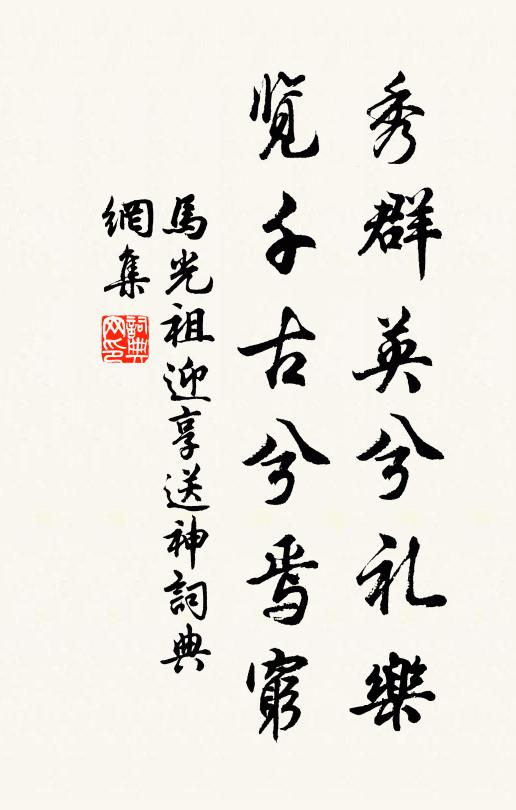 秀群英兮礼樂
览千古兮焉窮
馬光祖迎享送神詞典
網集
詞典網印